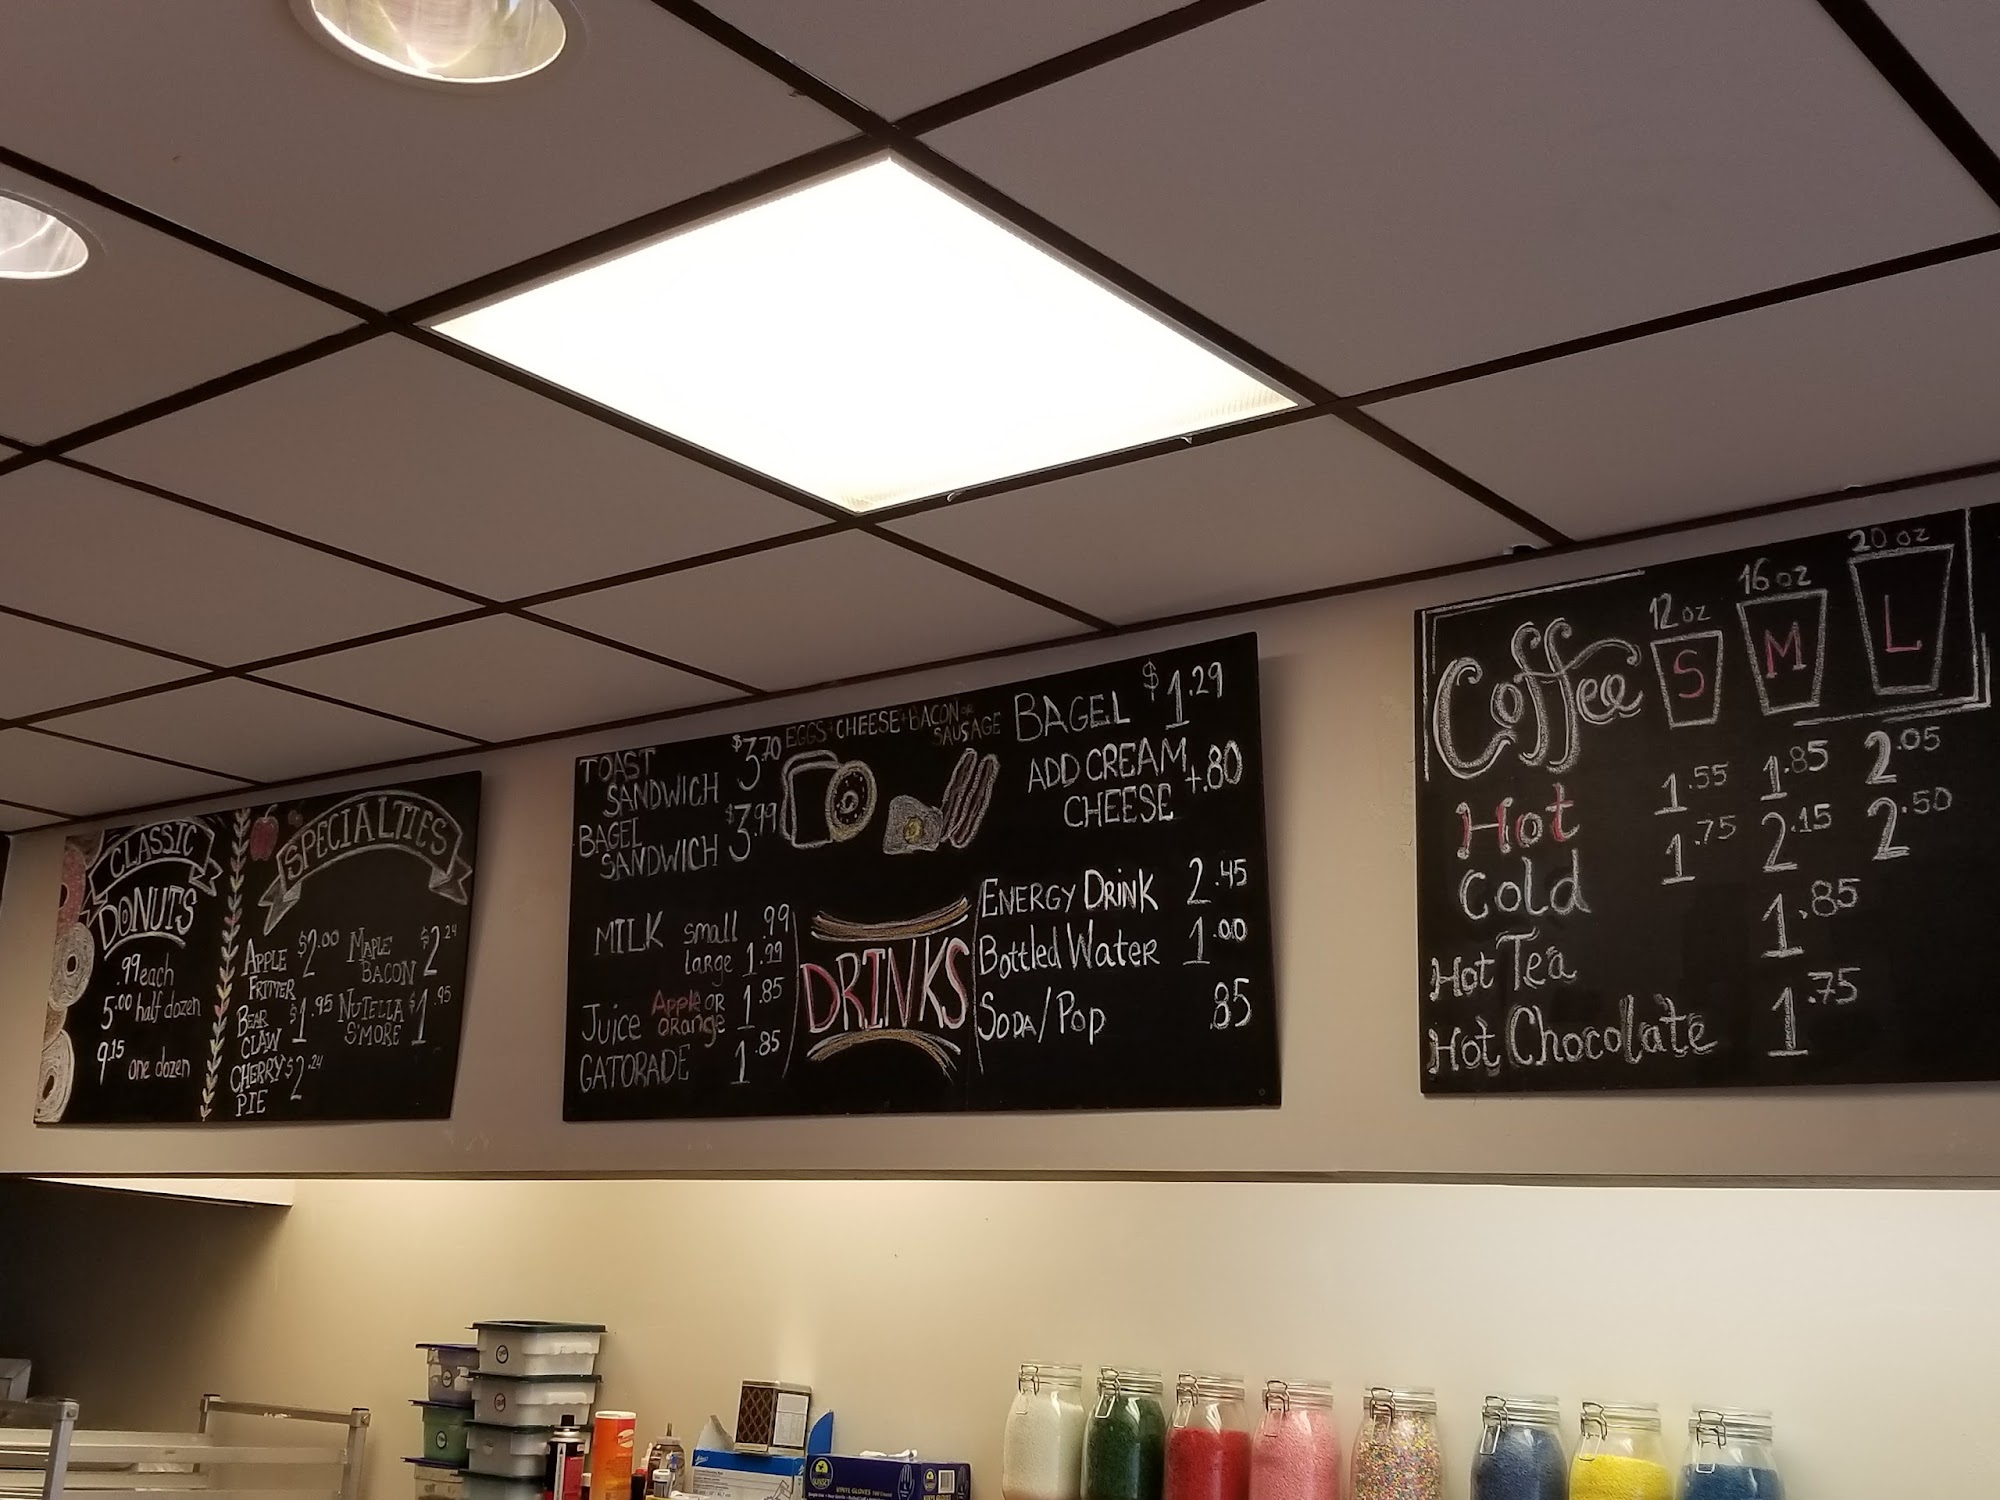 CLASSIC
DONUTS
.99 each
5.00 half dozen
9.15 one dozen
SPECIALTIES
APPLE FRITTER $2.00
BEAR CLAW $1.95
CHERRY PIE $2.24
MAPLE BACON $2.24
NUTELLA S'MORE $1.95
TOAST SANDWICH $3.70
BAGEL SANDWICH $3.99
EGGS + CHEESE + BACON OR SAUSAGE
BAGEL $1.29
ADD CREAM CHEESE +.80
MILK small .99
large 1.99
Juice Apple or orange 1.85
GATORADE 1.85
DRINKS
ENERGY DRINK 2.45
Bottled Water 1.00
SODA/POP .85
Coffee
12 oz 16 oz 20 oz
S M L
Hot 1.55 1.85 2.05
Cold 1.75 2.15 2.50
Hot Tea 1.85
Hot Chocolate 1.75
SUNSET
VINYL GLOVES
L